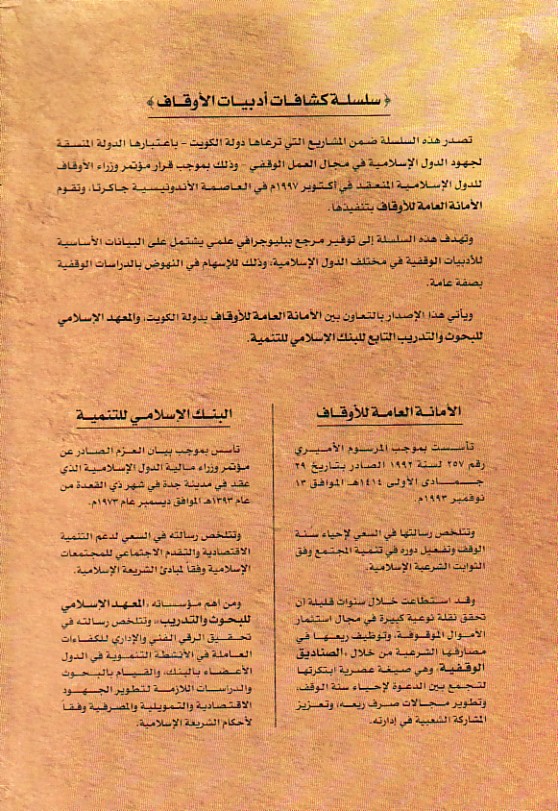 ﴿ سلسلة كشافات أدبيات الأوقاف ﴾
تصدر هذه السلسلة ضمن المشاريع التي ترعاها دولة الكويت - باعتبارها الدولة المنسقة
لجهود الدول الإسلامية في مجال العمل الوقفي - وذلك بموجب قرار مؤتمر وزراء الأوقاف
للدول الإسلامية المنعقد في أكتوبر ١٩٩٧م في العاصمة الأندونيسية جاكرتا، وتقوم
الأمانة العامة للأوقاف بتنفيذها.
وتهدف هذه السلسلة إلى توفير مرجع ببليوجرافي علمي يشتمل على البيانات الأساسية
للأدبيات الوقفية في مختلف الدول الإسلامية، وذلك للإسهام في النهوض بالدراسات الوقفية
بصفة عامة.
ويأتي هذا الإصدار بالتعاون بين الأمانة العامة للأوقاف بدولة الكويت، والمعهد الإسلامي
للبحوث والتدريب التابع للبنك الإسلامي للتنمية.
الأمانة العامة للأوقاف
تأسست بموجب المرسوم الأميري
رقم ٢٥٧ لسنة ١٩٩٣ الصادر بتاريخ ٢٩
جمادى الأولى ١٤١٤هـ الموافق ١٣
نوفمبر ١٩٩٣م.
وتتلخص رسالتها في السعي لإحياء سنة
الوقف وتفعيل دوره في تنمية المجتمع وفق
الثوابت الشرعية الإسلامية.
وقد استطاعت خلال سنوات قليلة أن
تحقق نقلة نوعية كبيرة في مجال استثمار
الأموال الموقوفة، وتوظيف ريعها في
مصارفها الشرعية من خلال، الصناديق
الوقفية، وهي صيغة عصرية ابتكرتها
لتجمع بين الدعوة لإحياء سنة الوقف،
وتطوير مجالات صرف ريعه، وتعزيز
المشاركة الشعبية في إدارته.
البنك الإسلامي للتنمية
تأسس بموجب بيان العزم الصادر عن
مؤتمر وزراء مالية الدول الإسلامية الذي
عقد في مدينة جدة في شهر ذي القعدة من
عام ١٣٩٣هـ الموافق ديسمبر عام ١٩٧٣م.
وتتلخص رسالته في السعي لدعم التنمية
الاقتصادية والتقدم الاجتماعي للمجتمعات
الإسلامية وفقاً لمبادئ الشريعة الإسلامية.
ومن أهم مؤسساته، المعهد الإسلامي
للبحوث والتدريب، وتتلخص رسالته في
تحقيق الرقي الفني والإداري للكفاءات
العاملة في الأنشطة التنموية في الدول
الأعضاء بالبنك، والقيام بالبحوث
والدراسات اللازمة لتطوير الجهود
الاقتصادية والتمويلية والمصرفية وفقاً
لأحكام الشريعة الإسلامية.